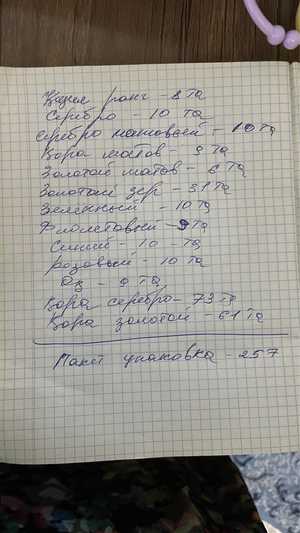 Кадие ранг - 8 та
Серебро - 10 та
серебро матовый - 10 та
Кора матов - 9 та
Золотой матов - 6 та
Золотой зер - 31 та
Зеленный - 10 та
Фиолетовый - 9 та
Синий - 10 - та
розовый - 10 та
Оқ - 9 та
Кора серебро - 73 та
Кора золотой - 61 та
Пакет упаковка - 257